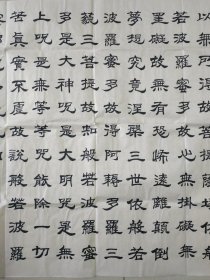 若波羅蜜多故心無掛礙無
罣礙故無有恐怖遠離顛倒
夢想究竟涅槃三世依般若
波羅蜜多故得阿耨多羅三
藐三菩提故知般若波羅蜜
多是大神呪是大明呪是無
上呪是無等等呪能除一切
苦真實不虛故說般若波羅